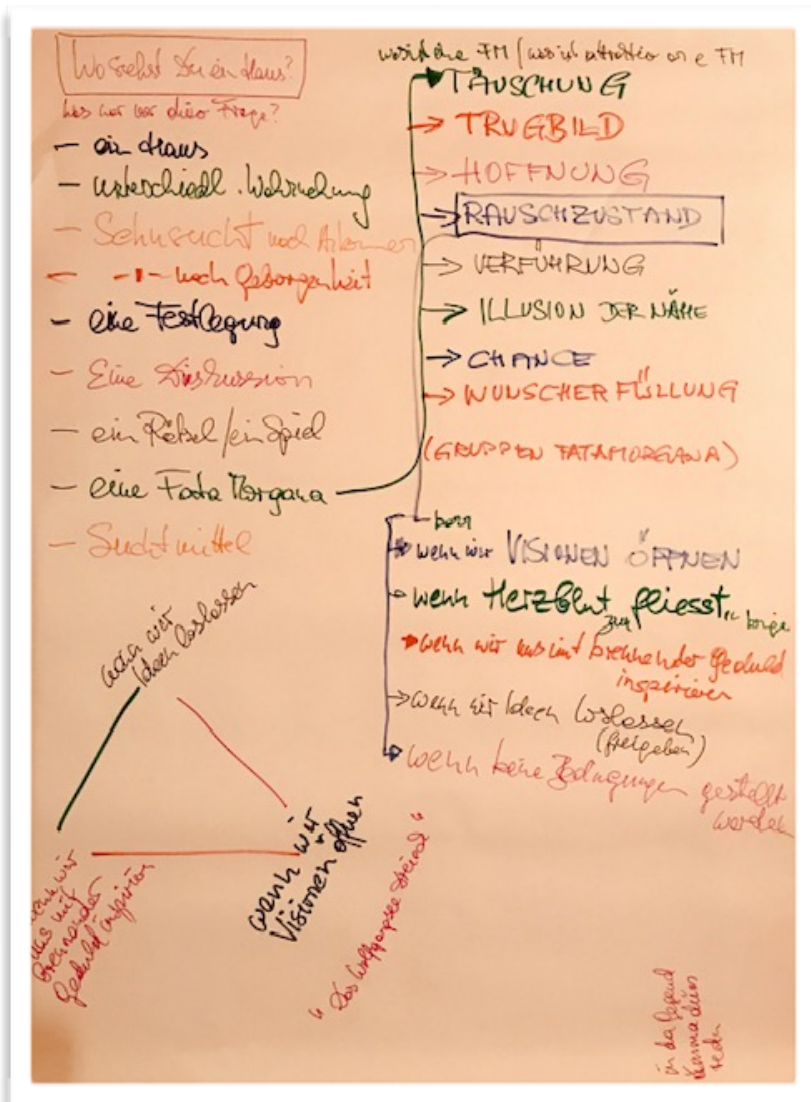 Wo siehst Du ein Haus?
Was war vor dieser Frage?
- ein Haus
- unterschiedl. Wahrnehmung
- Sehnsucht nach Ankommen
- -"- nach Geborgenheit
- eine Festlegung
- Eine Diskussion
- ein Rätsel/ein Spiel
- eine Fata Morgana
- Suchtmittel
was ist eine FM / was ist attraktiv an e FM
→ TÄUSCHUNG
→ TRUGBILD
→ HOFFNUNG
→ RAUSCHZUSTAND
→ VERFÜHRUNG
→ ILLUSION DER NÄHE
→ CHANCE
→ WUNSCHERFÜLLUNG
(GRUPPEN FATAMORGANA)
wenn wir VISIONEN ÖFFNEN
wenn Herzblut fliesst
wenn wir uns mit brennender Geduld
inspirieren
→ wenn wir Ideen loslassen
(freigeben)
wenn keine Bedingungen gestellt
werden
wenn wir
Ideen loslassen
wenn wir
Visionen öffnen
wenn wir
uns mit
brennender
Geduld inspirieren
"Das Wolfgangsee Dreieck"
in da Gegend